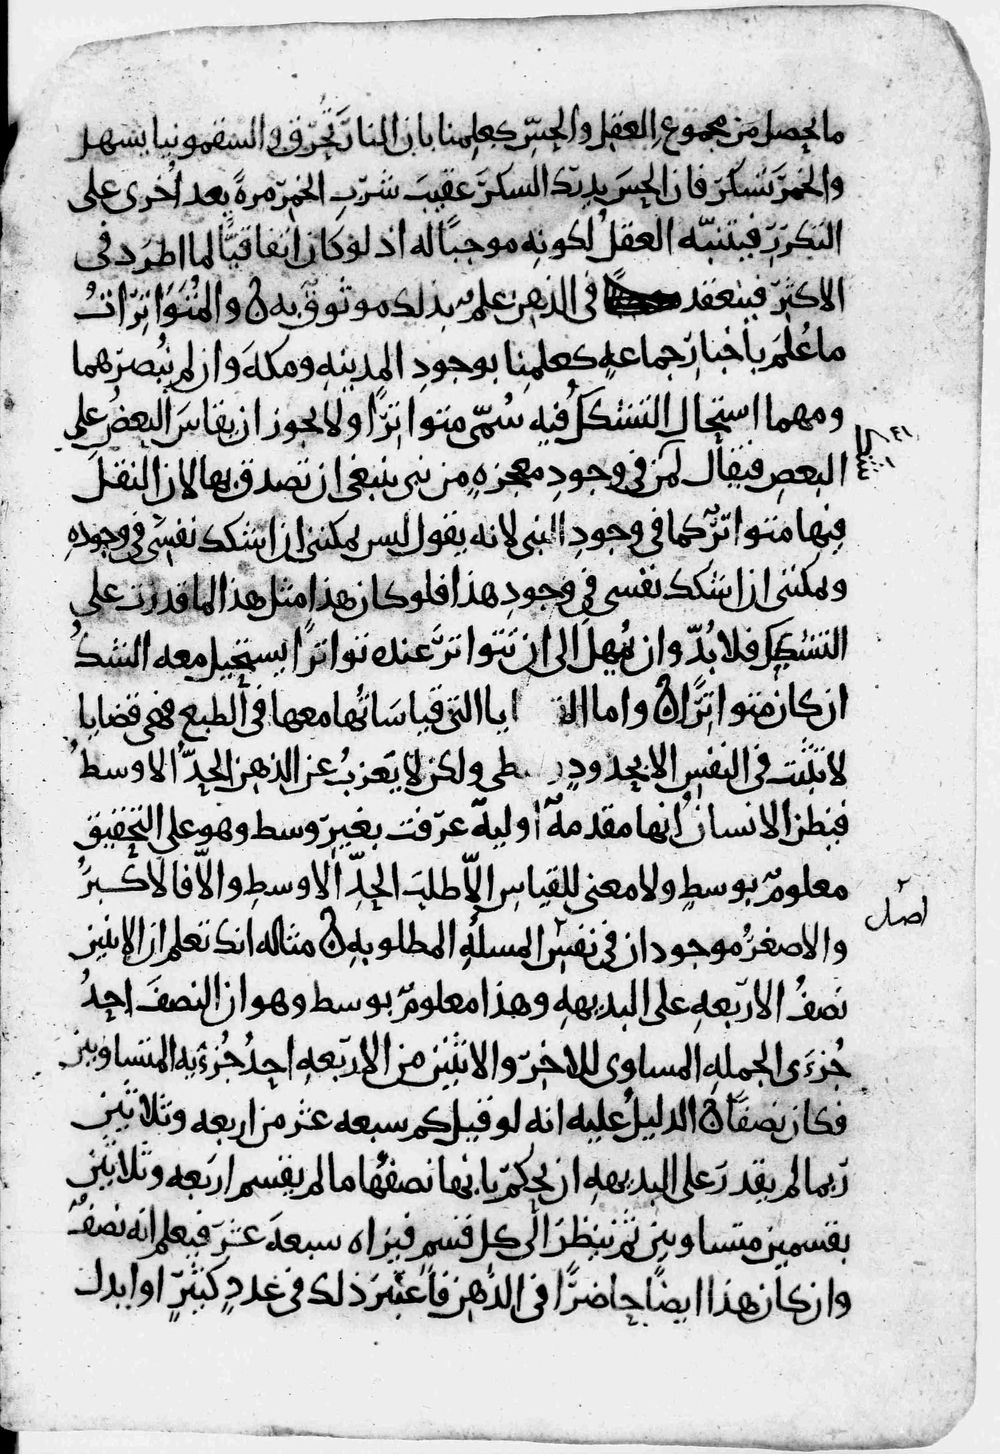 ما يحصل من مجموع العقل والحس كعلمنا بان النار تحرق والسقمونيا يسهل
والخمر تسكر فان الحس يدرك السكر عقيب شرب الخمر مرة بعد اخرى على
التكرر فيتنبه العقل لكونه موجبا له اذ لو كان اتفاقيا لما اطرد فى
الاكثر فينعقد فى الذهن علم بذلك موثوق به ن والمتواترات
ما علم باخبار جماعه كعلمنا بوجود المدينه ومكة وان لم نبصرهما
ومهما استحال التشكك فيه سمى متواترا ولا يجوز ان يقاس البعض على
البعض فيقال لمن فى وجود معجزه من نبى ينبغى ان تصدق بها لان النقل
فيها متواتر كما فى وجود النبى لانه يقول ليس يمكننى ان اشكك نفسى فى وجوده
ويمكننى ان اشكك نفسى فى وجود هذا فلو كان هذا مثل هذا لما قدرت على
التشكك فلا بد وان يمهل الى ان تتواتر عنده تواترا يستحيل معه الشك
ان كان متواترا ن واما ايا التى قياساتها معها فى الطبع فهى قضايا
لا تثبت فى النفس الا بحدود طى ولكن لا يعزب عن الذهن الحد الاوسط
فيظن الانسان انها مقدمة اولية عرفت بغير وسط وهو على التحقيق
معلوم بوسط ولا معنى للقياس الا طلب الحد الاوسط والا فالاكبر
والاصغر موجودان فى نفس المسله المطلوبه ن مثاله انك تعلم ان الاثنين
نصف الاربعه على البديهه وهذا معلوم بوسط وهو ان النصف احد
جزءى الجمله المساوى للاخر والاثنين من الاربعه احد جزءيه المتساويين
فكان نصفا ن الدليل عليه انه لو قيل كم سبعه عشر من اربعه وثلاثين
ربما لم يقدر على البديهه ان يحكم بانها نصفها ما لم يقسم اربعه وثلاثين
بقسمين متساويين ثم ينظر الى كل قسم فيراه سبعة عشر فيعلم انه نصف
وان كان هذا ايضا حاضرا فى الذهن فاعتبر ذلك فى عدد كثير او ابدل
اصل